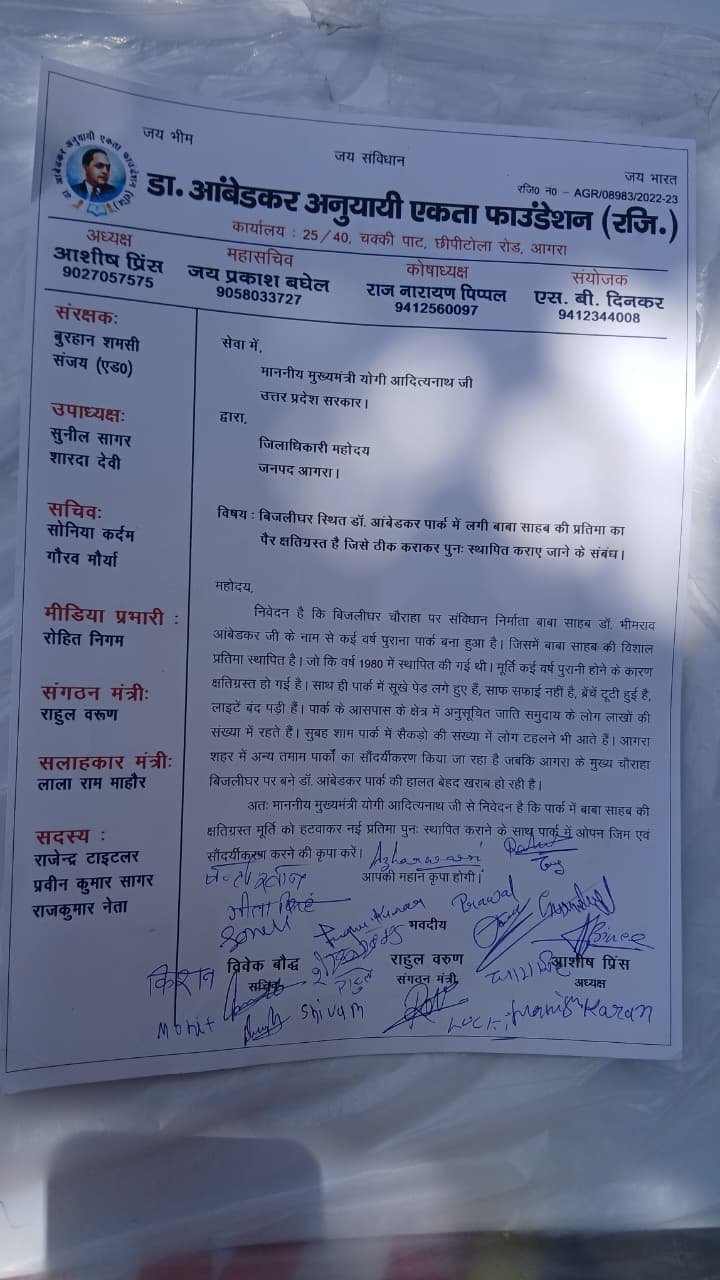 जय भीम
जय संविधान
जय भारत
रजि0 न0 – AGR/08983/2022-23
डा. आंबेडकर अनुयायी एकता फाउंडेशन (रजि.)
कार्यालय : 25/40, चक्की पाट, छीपीटोला रोड, आगरा
अध्यक्ष
आशीष प्रिंस
9027057575
महासचिव
जय प्रकाश बघेल
9058033727
कोषाध्यक्ष
राज नारायण पिप्पल
9412560097
संयोजक
एस. बी. दिनकर
9412344008
संरक्षक:
बुरहान शमसी
संजय (एड0)
उपाध्यक्ष:
सुनील सागर
शारदा देवी
सचिव:
सोनिया कर्दम
गौरव मौर्या
मीडिया प्रभारी :
रोहित निगम
संगठन मंत्री:
राहुल वरूण
सलाहकार मंत्री:
लाला राम माहौर
सदस्य :
राजेन्द्र टाइटलर
प्रवीन कुमार सागर
राजकुमार नेता
सेवा में,
माननीय मुख्यमंत्री योगी आदित्यनाथ जी
उत्तर प्रदेश सरकार।
द्वारा,
जिलाधिकारी महोदय
जनपद आगरा।
विषय : बिजलीघर स्थित डॉ. आंबेडकर पार्क में लगी बाबा साहब की प्रतिमा का
पैर क्षतिग्रस्त है जिसे ठीक कराकर पुनः स्थापित कराए जाने के संबंध।
महोदय,
निवेदन है कि बिजलीघर चौराहा पर संविधान निर्माता बाबा साहब डॉ. भीमराव
आंबेडकर जी के नाम से कई वर्ष पुराना पार्क बना हुआ है। जिसमें बाबा साहब की विशाल
प्रतिमा स्थापित है। जो कि वर्ष 1980 में स्थापित की गई थी। मूर्ति कई वर्ष पुरानी होने के कारण
क्षतिग्रस्त हो गई है। साथ ही पार्क में सूखे पेड़ लगे हुए हैं, साफ सफाई नहीं है, ब्रेंचें टूटी हुई है,
लाइटें बंद पड़ी हैं। पार्क के आसपास के क्षेत्र में अनुसूचित जाति समुदाय के लोग लाखों की
संख्या में रहते हैं। सुबह शाम पार्क में सैकड़ो की संख्या में लोग टहलने भी आते हैं। आगरा
शहर में अन्य तमाम पार्कों का सौंदर्यीकरण किया जा रहा है जबकि आगरा के मुख्य चौराहा
बिजलीघर पर बने डॉ. आंबेडकर पार्क की हालत बेहद खराब हो रही है।
अतः माननीय मुख्यमंत्री योगी आदित्यनाथ जी से निवेदन है कि पार्क में बाबा साहब की
क्षतिग्रस्त मूर्ति को हटवाकर नई प्रतिमा पुनः स्थापित कराने के साथ पार्क में ओपन जिम एवं
सौंदर्यीकरण करने की कृपा करें।
आपकी महान कृपा होगी।
भवदीय
विवेक बौद्ध
सचिव
राहुल वरुण
संगठन मंत्री
आशीष प्रिंस
अध्यक्ष
किशन
Mohit
Shivam
राहुल
Karan